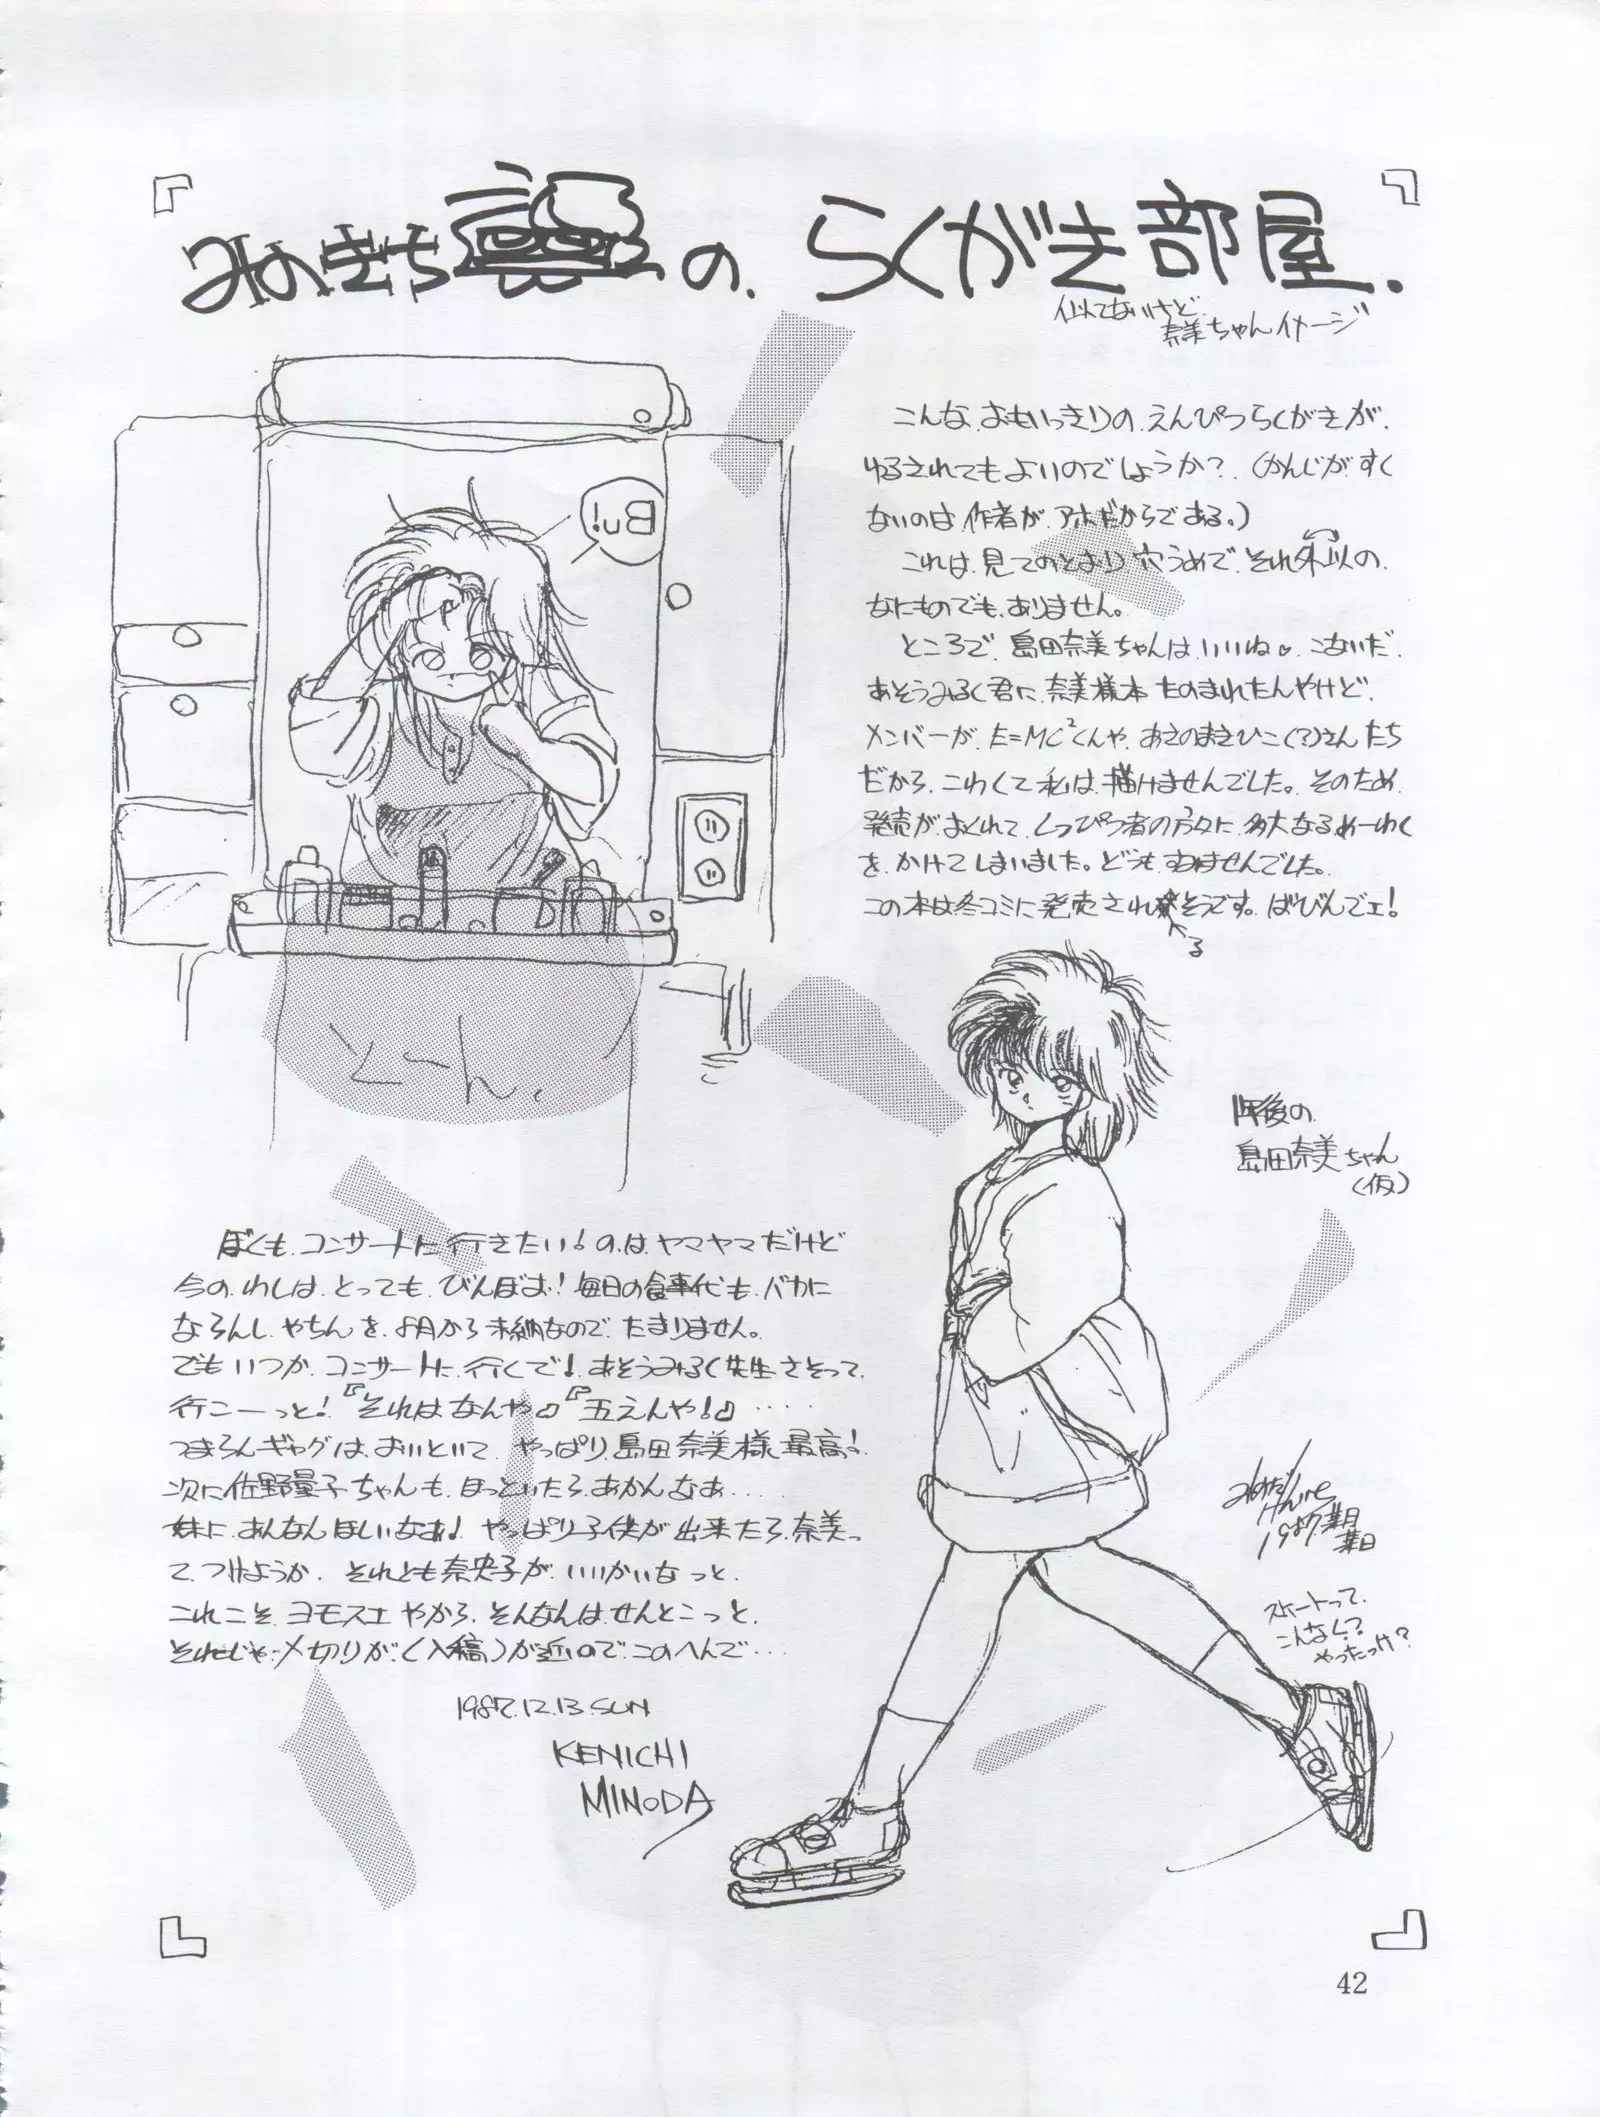 みのきち の、らくがき部屋.
似てないけど.
奈美ちゃんイメージ
Bu!
こんな、おもいっきりの、えんぴつらくがきが、
ゆるされてもよいのでしょうか?.(かんじが、すく
ないのは作者が、アホだからである。)
これは、見てのとおり穴うめで、それ外以の、
なにものでも、ありません。
ところで、島田奈美ちゃんは、いいね♡. こないだ、
あそうみるく君に、奈美様本 たのまれたんやけど、
メンバーが、E=MC²くんや、あさのまさひこ(?)さんたち
だから、こわくて私は、描けませんでした。そのため、
発売が、おくれて、しっぴつ者の方々に、多大なるめーわく
を、かけてしまいました。どうも、すいませんでした。
この本は冬コミに発売されそうです。ばびんでェ!
る
とーん.
1年後の、
島田奈美ちゃん
(仮)
ぼくも、コンサートに行きたい!の、は、ヤマヤマだけど
今の、わしは、とっても、びんぼお!毎日の食事代も、バカに
ならんし、やちんを、8月から未納なので、たまりません。
でもいつか、コンサートに、行くで!.あそうみるく先生さそって、
行こーっと!『それはなんや♪』『五えんや!♪....
つまらんギャグは、おいといて、やっぱり、島田奈美様、最高!.
次に佐野量子ちゃんも、ほっといたら、あかんなあ....
妹に、あんなんほしいなあ! やっぱり子供が出来たら、奈美っ
て、つけようか、それとも奈央子が、いいかいなっと、
これこそ、ヨモスエやから、そんなんは、せんとこっと、
それじゃ、〆切りが、(入稿)が近いので、このへんで...
1987.12.13.SUN
KENICHI
MINODA
1987
スケートって、
こんなん?
やったっけ?
42